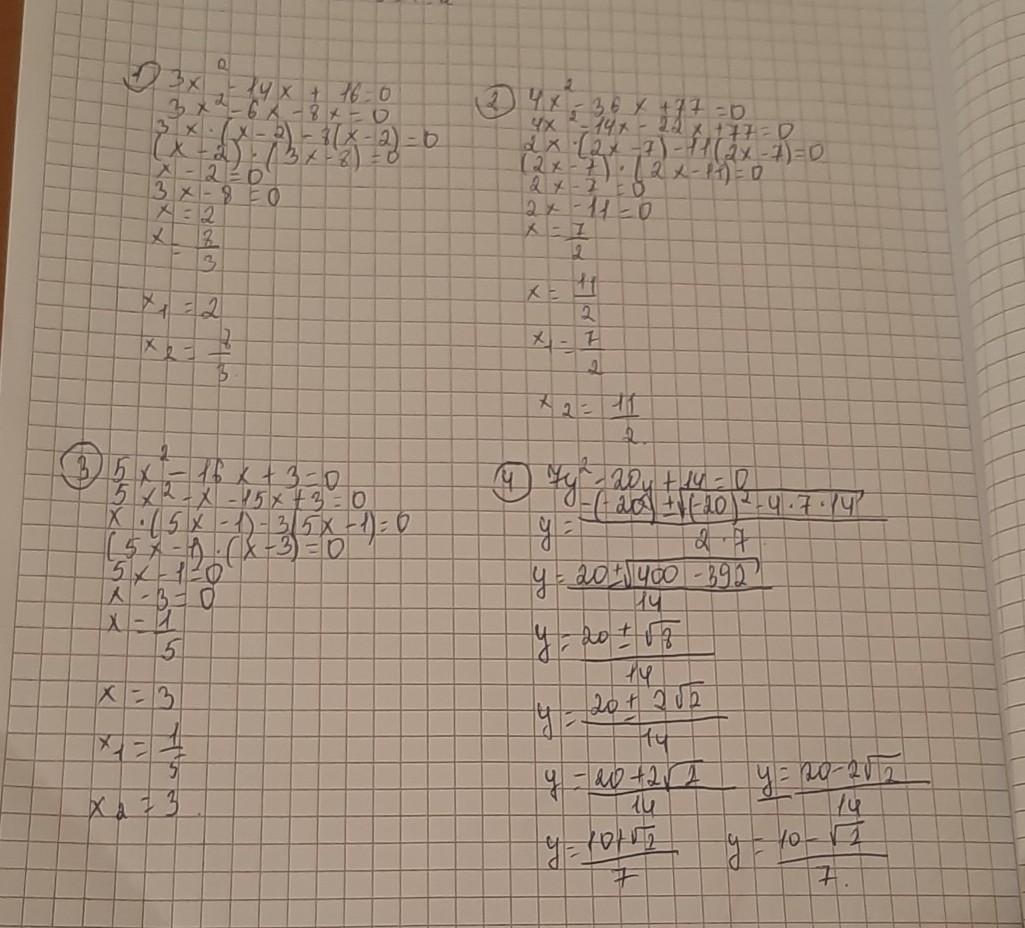 1) 3x² - 14x + 16 = 0
3x² - 6x - 8x = 0
3x · (x - 2) - 8(x - 2) = 0
(x - 2) · (3x - 8) = 0
x - 2 = 0
3x - 8 = 0
x = 2
x = 8/3
x₁ = 2
x₂ = 8/3
2) 4x² - 36x + 77 = 0
4x² - 14x - 22x + 77 = 0
2x · (2x - 7) - 11(2x - 7) = 0
(2x - 7) · (2x - 11) = 0
2x - 7 = 0
2x - 11 = 0
x = 7/2
x = 11/2
x₁ = 7/2
x₂ = 11/2
3) 5x² - 16x + 3 = 0
5x² - x - 15x + 3 = 0
x · (5x - 1) - 3(5x - 1) = 0
(5x - 1) · (x - 3) = 0
5x - 1 = 0
x - 3 = 0
x = 1/5
x = 3
x₁ = 1/5
x₂ = 3
4) 7y² - 20y + 14 = 0
y = (-(-20) ± √((-20)² - 4 · 7 · 14))/(2 · 7)
y = (20 ± √(400 - 392))/14
y = (20 ± √8)/14
y = (20 ± 2√2)/14
y = (20 + 2√2)/14 y = (20 - 2√2)/14
y = (10 + √2)/7 y = (10 - √2)/7